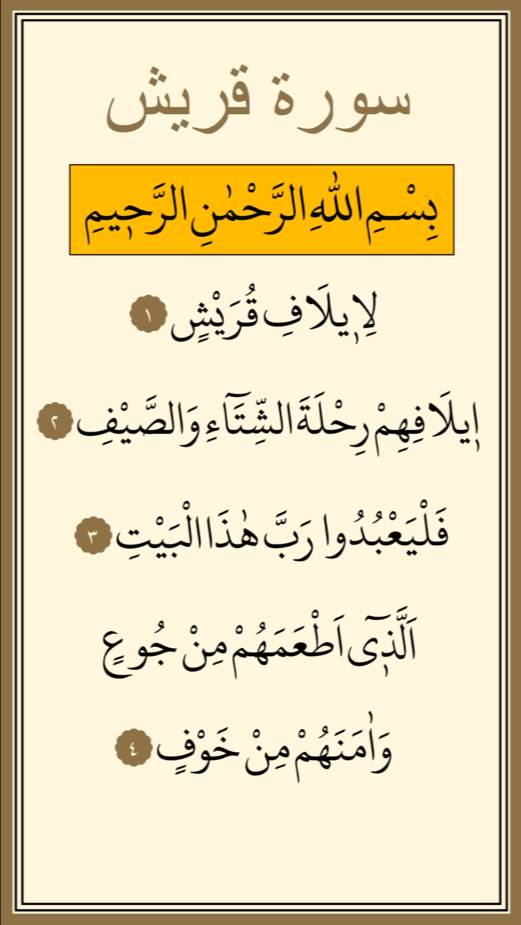 سورة قريش
بِسْمِ اللّٰهِ الرَّحْمٰنِ الرَّحٖيمِ
لِاٖيلَافِ قُرَيْشٍ ١
اٖيلَافِهِمْ رِحْلَةَ الشِّتَٓاءِ وَالصَّيْفِ ٢
فَلْيَعْبُدُوا رَبَّ هٰذَا الْبَيْتِ ٣
اَلَّذٖٓى اَطْعَمَهُمْ مِنْ جُوعٍ
وَاٰمَنَهُمْ مِنْ خَوْفٍ ٤